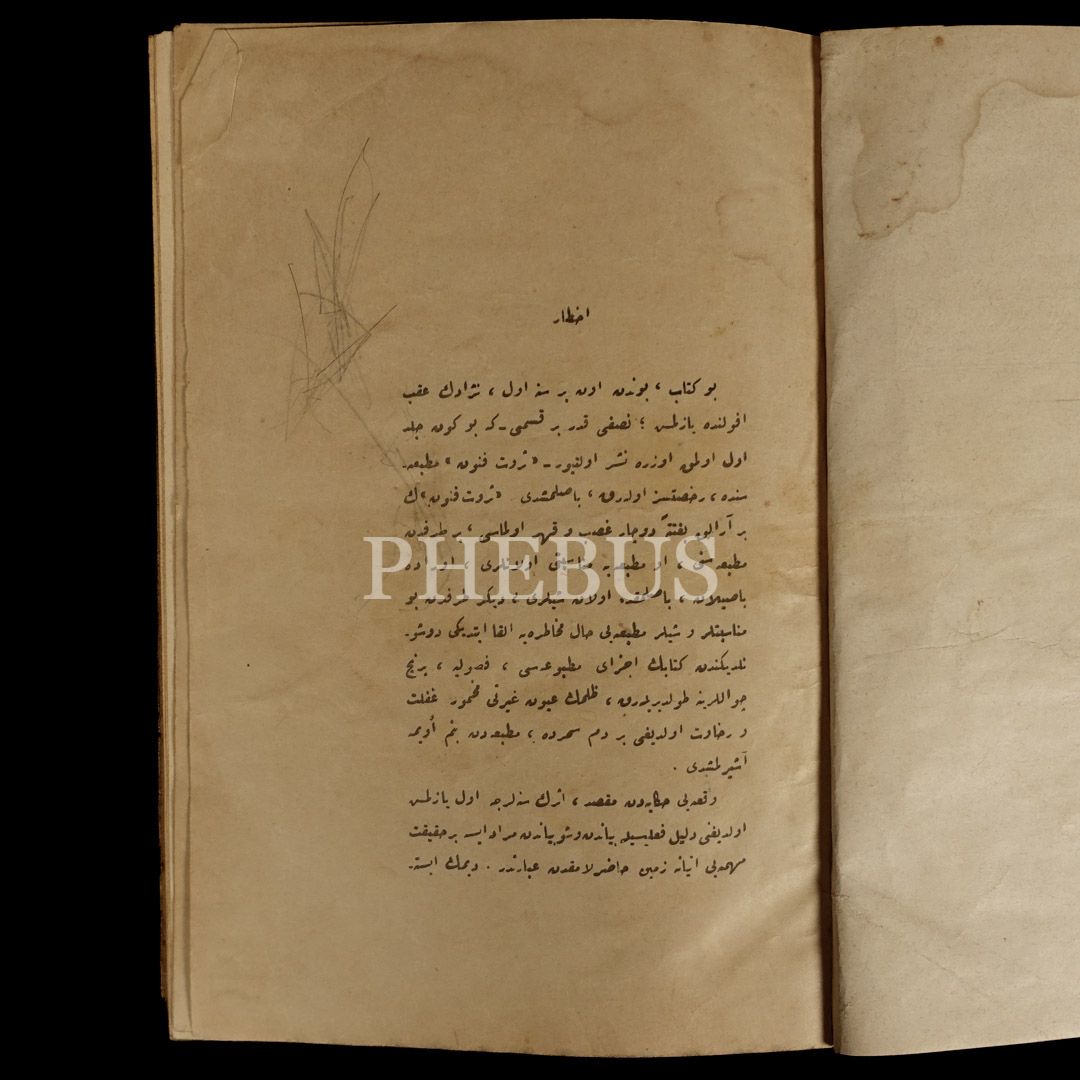 اخطار
بو كتاب ، بوندن اون بر سنه اول ، نژادك عقب
افولنده يازلمش ؛ نصفى قدر بر قسمى ـ كه بو كون جلد
اول اولمق اوزره نشر اولنيور ـ « ثروت فنون » مطبعه
سنده ، رخصتسز اوله رق ، باصلمشدى « ثروت فنون » ك
بر آرالق بغتةً دوچار غصب و قهر اولماسى ، بر طرفدن
مطبعه سنى ، او مطبعه يه مناسبتى اولانلرى ، اوراده
باصيلان ، باصلمقده اولان شيلرى ؛ ديكر طرفدن بو
مناسبتلر و شيلر مطبعه يى حال مخاطره يه القا ايتديكى دوشو
نلديكندن كتابك اجزاى مطبوعه سى ، فصوليه ، برنج
چواللرينه طولديريله رق ، ظلمك عيون غيرتى مخمور غفلت
و رخاوت اولديغى بر دم سحرده ، مطبعه دن بنم أويمه
آشيرلمشدى .
وقعه يى حكايه دن مقصد ، اثرك سنه لرجه اول يازلمش
اولديغنى دليل فعليسيله بياندن و شو بياندن مراد ايسه بر حقيقت
مهمه يى اتيانه زمين حاضرلامقدن عبارتدر . ديمك ايستر
PHEBUS